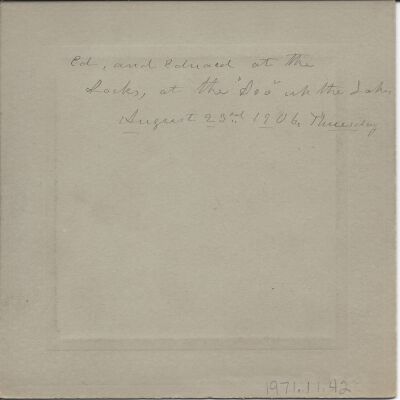 Ed, and Edward at the
Locks, at the "Soo" up the Lake
August 23rd. 1906, Thursday
1971.11.42